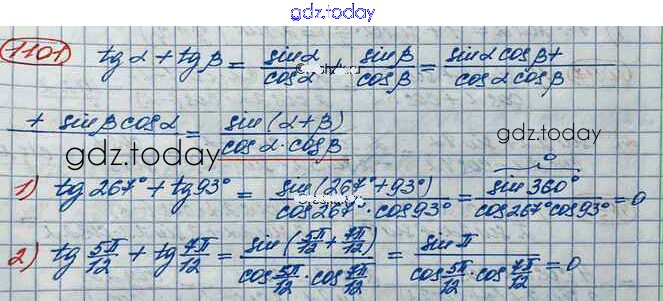 gdz.today
1101 tg α + tg β = sin α / cos α + sin β / cos β = sin α cos β + / cos α cos β
+ sin β cos α = sin (α + β) / cos α · cos β
gdz.today gdz.today
1) tg 267° + tg 93° = sin (267° + 93°) / cos 267° · cos 93° = sin 360° / cos 267° cos 93° = 0
0
2) tg 5π/12 + tg 7π/12 = sin (5π/12 + 7π/12) / cos 5π/12 · cos 7π/12 = sin π / cos 5π/12 · cos 7π/12 = 0